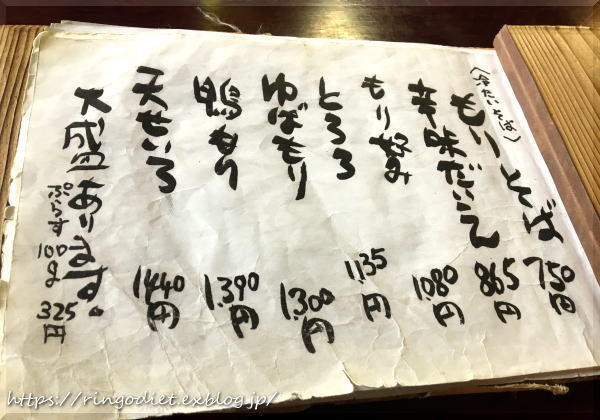 〈冷たいそば〉
もりそば 750円
辛味だいこん 865円
もり好み 1,080円
とろろ 1,135円
ゆばもり 1,300円
鴨もり 1,390円
天せいろ 1440円
大盛あります。
ぷらす100g 325円
https://ringodiet.exblog.jp/